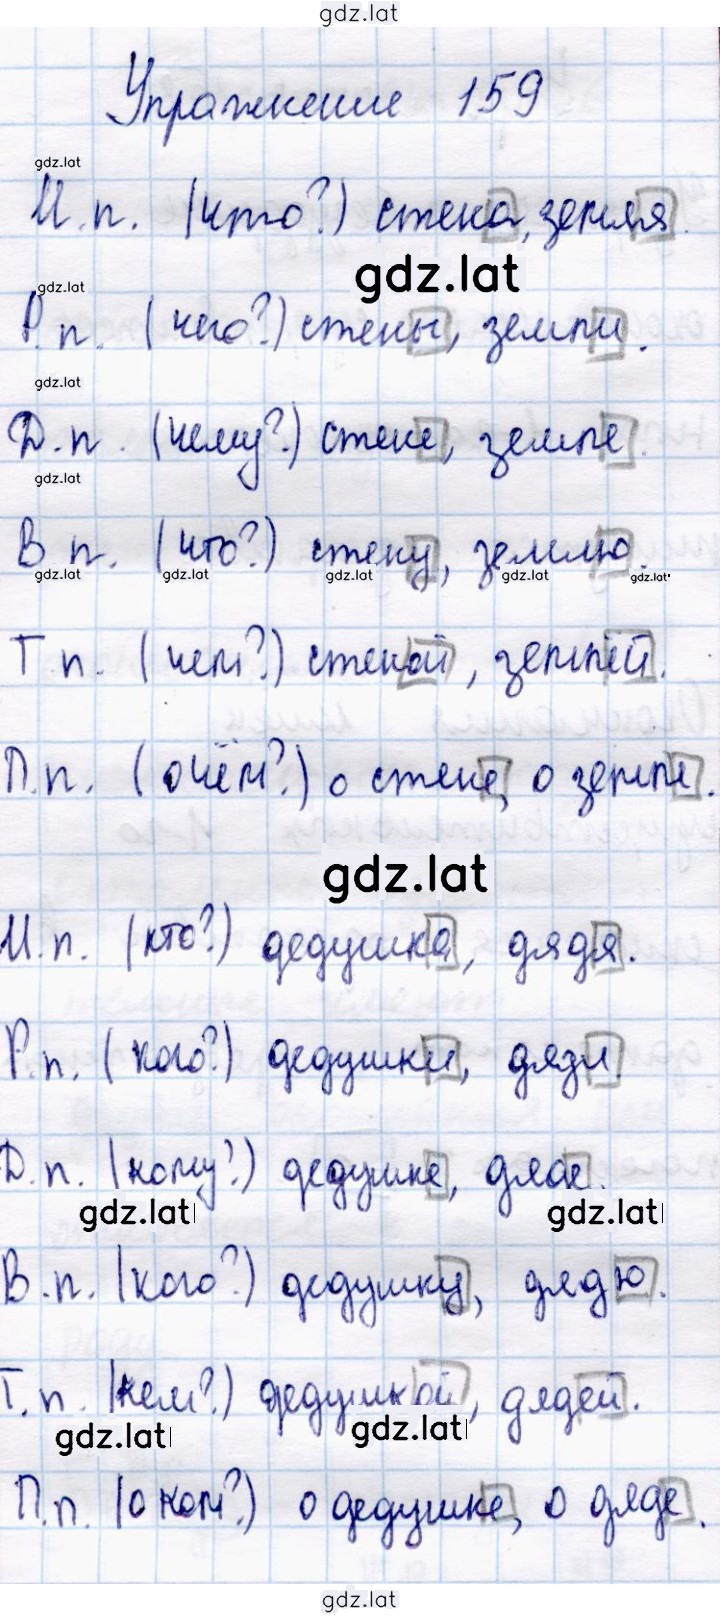 gdz.lat
Упражнение 159
gdz.lat
И.п. (что?) стена, земля.
gdz.lat
gdz.lat
Р.п. (чего?) стены, земли.
gdz.lat
Д.п. (чему?) стене, земле.
gdz.lat
В п. (что?) стену, землю.
gdz.lat gdz.lat gdz.lat gdz.lat gdz.lat
Т.п. (чем?) стеной, землёй.
П.п. (о чём?) о стене, о земле.
gdz.lat
И.п. (кто?) дедушка, дядя.
Р.п. (кого?) дедушки, дяди.
Д.п. (кому?) дедушке, дяде.
gdz.lat gdz.lat
В.п. (кого?) дедушку, дядю.
Т.п. (кем?) дедушкой, дядей.
gdz.lat gdz.lat
П.п. (о ком?) о дедушке, о дяде.
gdz.lat